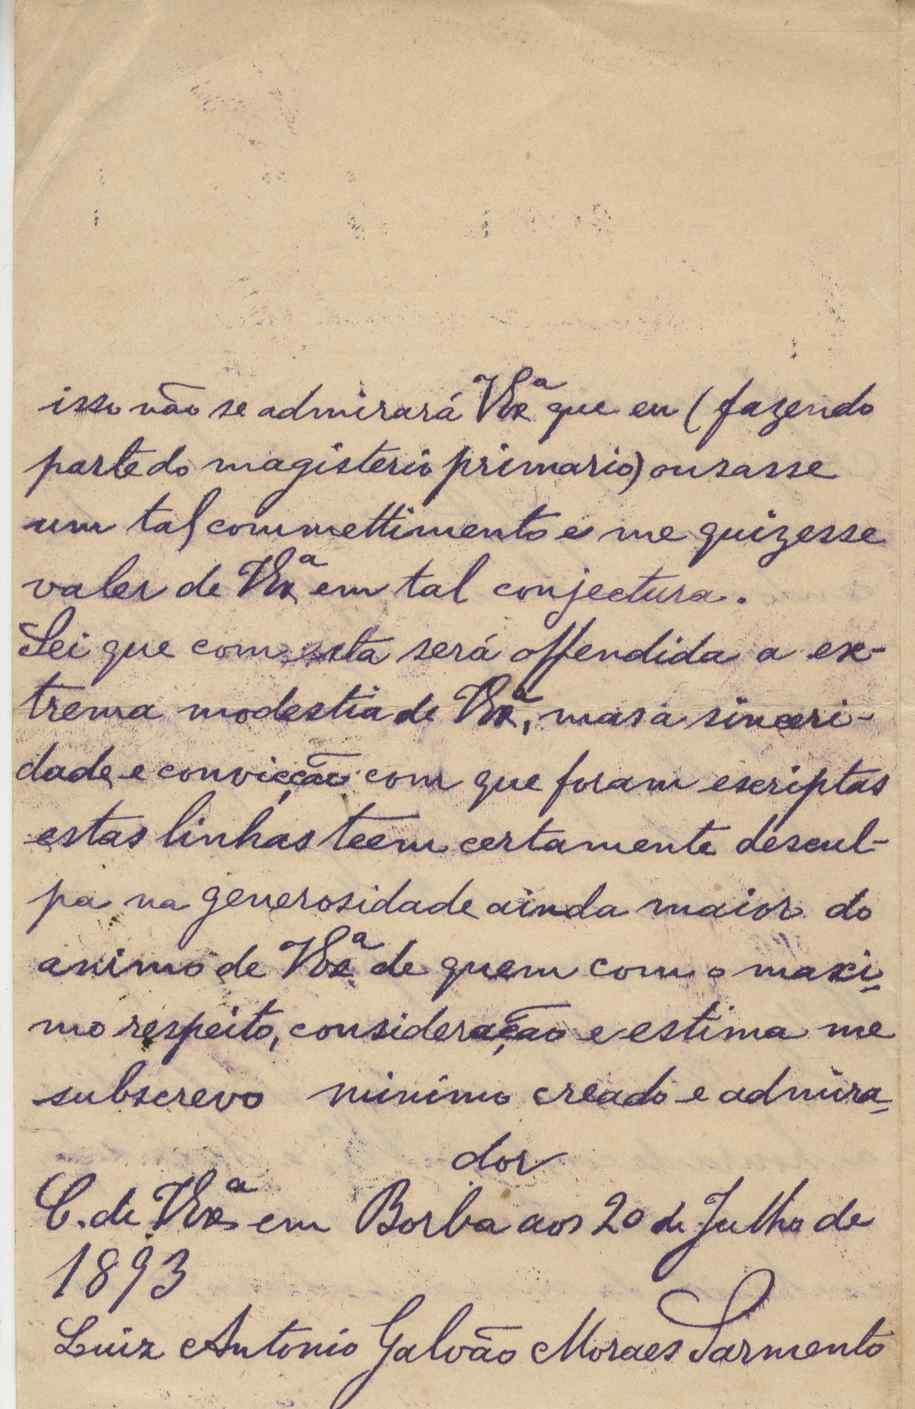 isso não se admirará V Exª que eu (fazendo
parte do magisterio primario) ousasse
um tal commettimento e me quizesse
valer de V Exª em tal conjectura.
Sei que com esta será offendida a ex-
trema modestia de V Exª, mas a sinceri-
dade e convicção com que foram escriptas
estas linhas teem certamente descul-
pa na generosidade ainda maior do
animo de V Exª de quem com o maxi-
mo respeito, consideração e estima me
subscrevo minimo creado e admira-
dor
C. de V Exª em Borba aos 20 de Julho de
1893
Luiz Antonio Galvão Moraes Sarmento